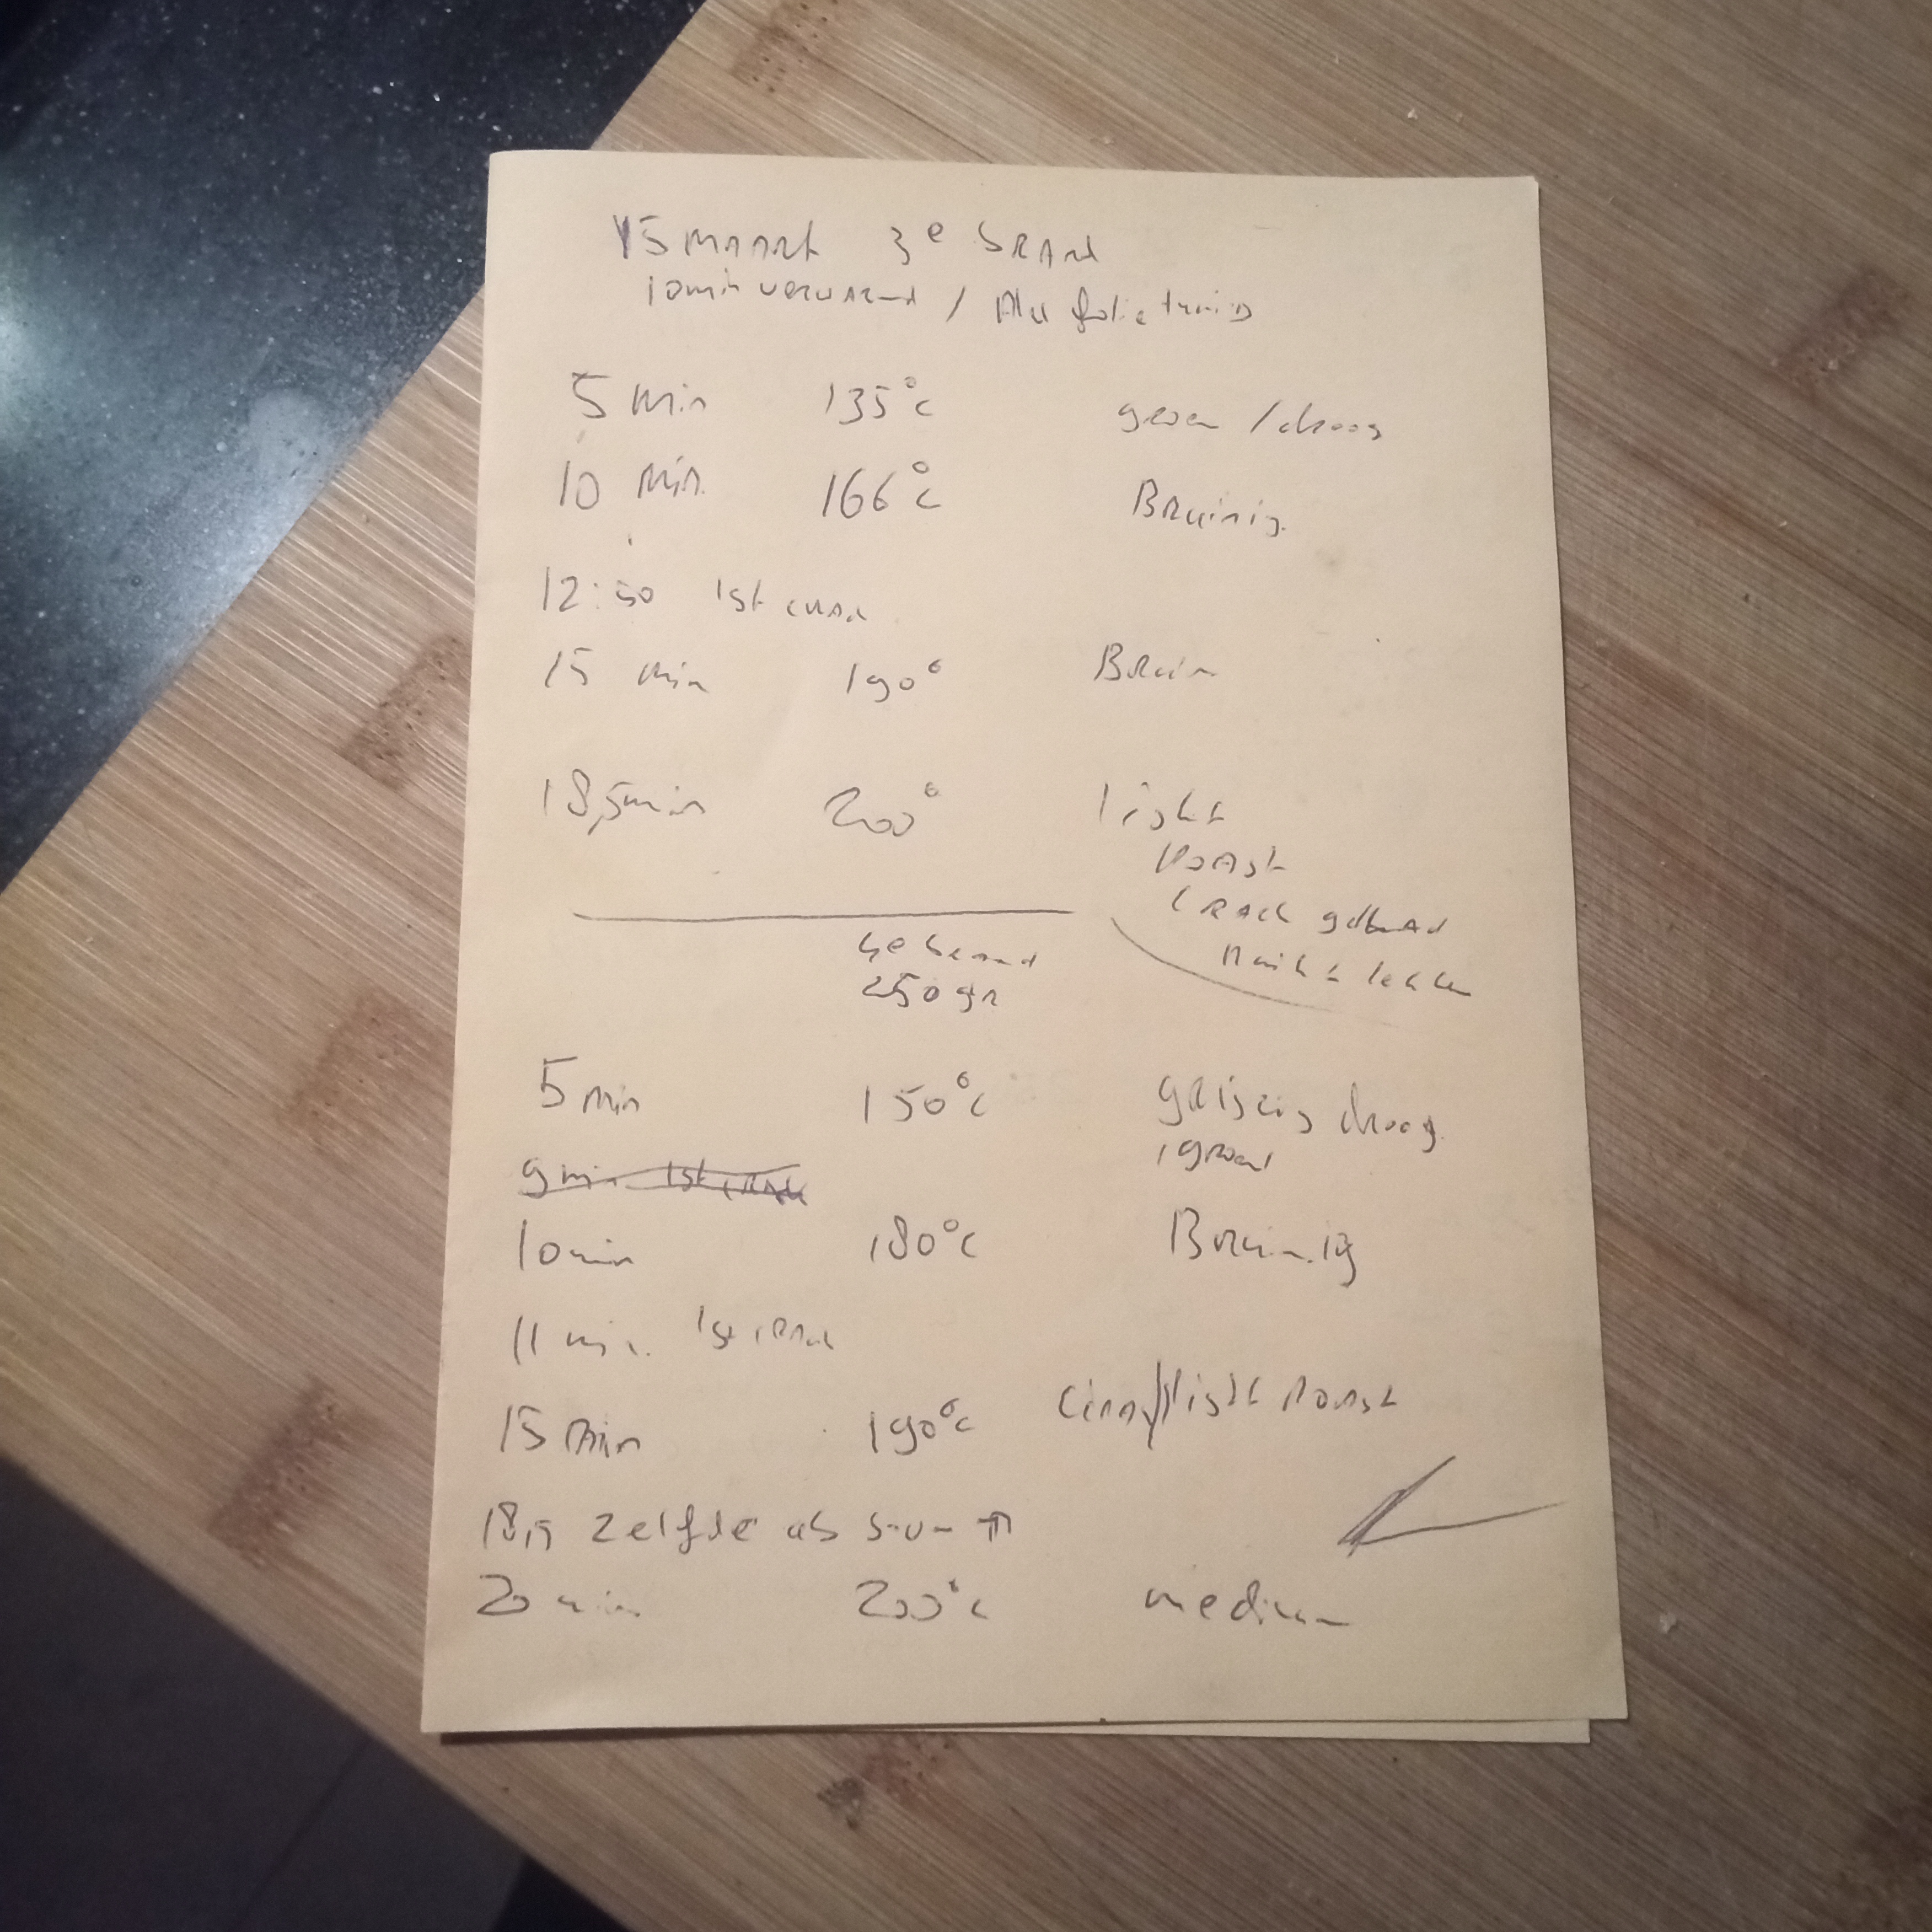 15 maart 3e brand
10min verwarmd / Alu folie tunnis
5 min 135°c groen / droog
10 min. 166°c Bruinig.
12:50 1st crack
15 min 190° Bruin
18,5min 200° light
Roast
Crack gehad
ruikt lekker
4e brand
250 gr
5 min 150°c grijzig droog.
groen
9 min 1st crack
10 min 180°c Bruinig
11 min. 1st crack
15 min 190°c Cinn/light Roast
18,5 zelfde als
20 min 200°c medium